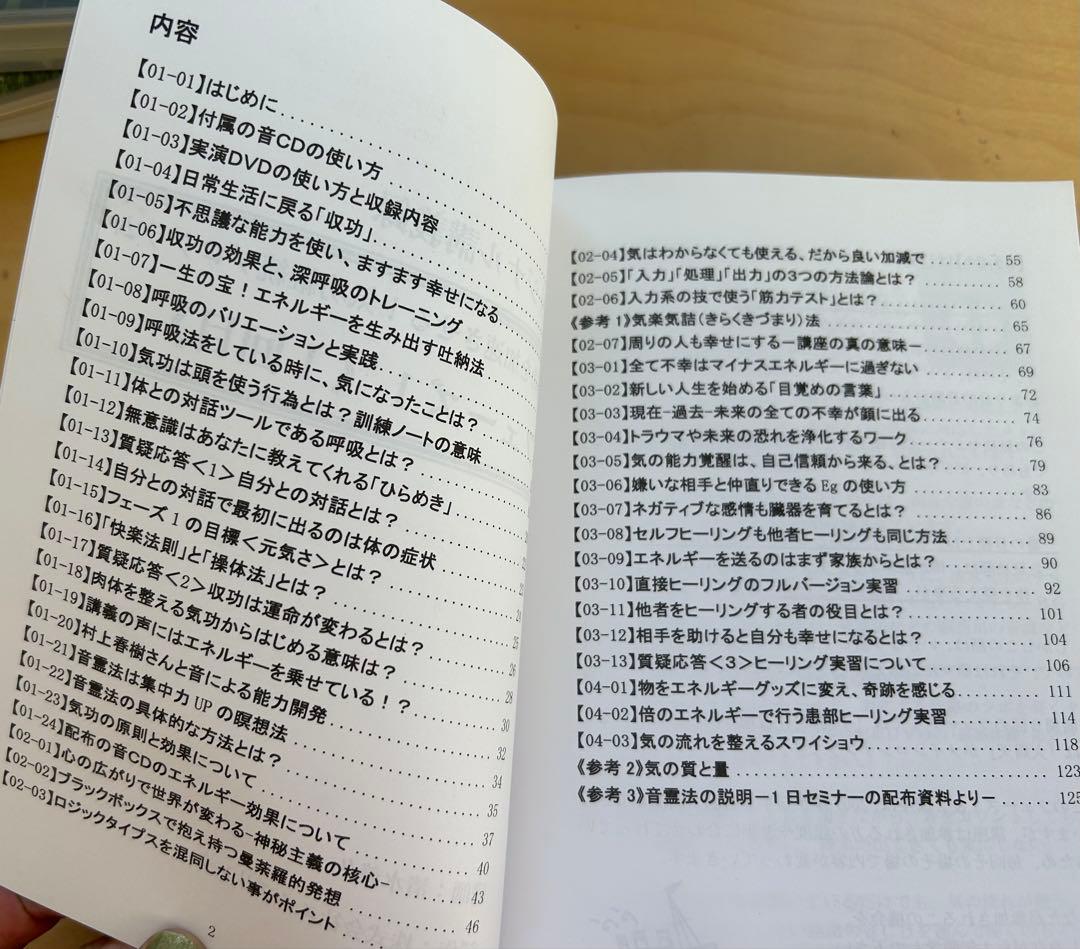 内容
【01-01】はじめに
【01-02】付属の音CDの使い方
【01-03】実演DVDの使い方と収録内容
【01-04】日常生活に戻る「収功」
【01-05】不思議な能力を使い、ますます幸せになる
【01-06】収功の効果と、深呼吸のトレーニング
【01-07】一生の宝！エネルギーを生み出す吐納法
【01-08】呼吸のバリエーションと実践
【01-09】呼吸法をしている時に、気になったことは？
【01-10】気功は頭を使う行為とは？訓練ノートの意味
【01-11】体との対話ツールである呼吸とは？
【01-12】無意識はあなたに教えてくれる「ひらめき」
【01-13】質疑応答＜1＞自分との対話とは？
【01-14】自分との対話で最初に出るのは体の症状
【01-15】フェーズ1の目標＜元気さ＞とは？
【01-16】「快楽法則」と「操体法」とは？
【01-17】質疑応答＜2＞収功は運命が変わるとは？ 25
【01-18】肉体を整える気功からはじめる意味は？ 26
【01-19】講義の声にはエネルギーを乗せている！？ 28
【01-20】村上春樹さんと音による能力開発 30
【01-21】音霊法は集中力UPの瞑想法 32
【01-22】音霊法の具体的な方法とは？ 34
【01-23】気功の原則と効果について 35
【01-24】配布の音CDのエネルギー効果について 37
【02-01】心の広がりで世界が変わる-神秘主義の核心- 40
【02-02】ブラックボックスで抱え持つ曼荼羅的発想 43
【02-03】ロジックタイプスを混同しない事がポイント 46
2
【02-04】気はわからなくても使える、だから良い加減で 55
【02-05】「入力」「処理」「出力」の3つの方法論とは？ 58
【02-06】入力系の技で使う「筋力テスト」とは？ 60
《参考1》気楽気詰(きらくきづまり)法 65
【02-07】周りの人も幸せにする－講座の真の意味－ 67
【03-01】全て不幸はマイナスエネルギーに過ぎない 69
【03-02】新しい人生を始める「目覚めの言葉」 72
【03-03】現在-過去-未来の全ての不幸が顔に出る 74
【03-04】トラウマや未来の恐れを浄化するワーク 76
【03-05】気の能力覚醒は、自己信頼から来る、とは？ 79
【03-06】嫌いな相手と仲直りできるEgの使い方 83
【03-07】ネガティブな感情も臓器を育てるとは？ 86
【03-08】セルフヒーリングも他者ヒーリングも同じ方法 89
【03-09】エネルギーを送るのはまず家族からとは？ 90
【03-10】直接ヒーリングのフルバージョン実習 92
【03-11】他者をヒーリングする者の役目とは？ 101
【03-12】相手を助けると自分も幸せになるとは？ 104
【03-13】質疑応答＜3＞ヒーリング実習について 106
【04-01】物をエネルギーグッズに変え、奇跡を感じる 111
【04-02】倍のエネルギーで行う患部ヒーリング実習 114
【04-03】気の流れを整えるスワイショウ 118
《参考2》気の質と量 123
《参考3》音霊法の説明－1日セミナーの配布資料より－ 125